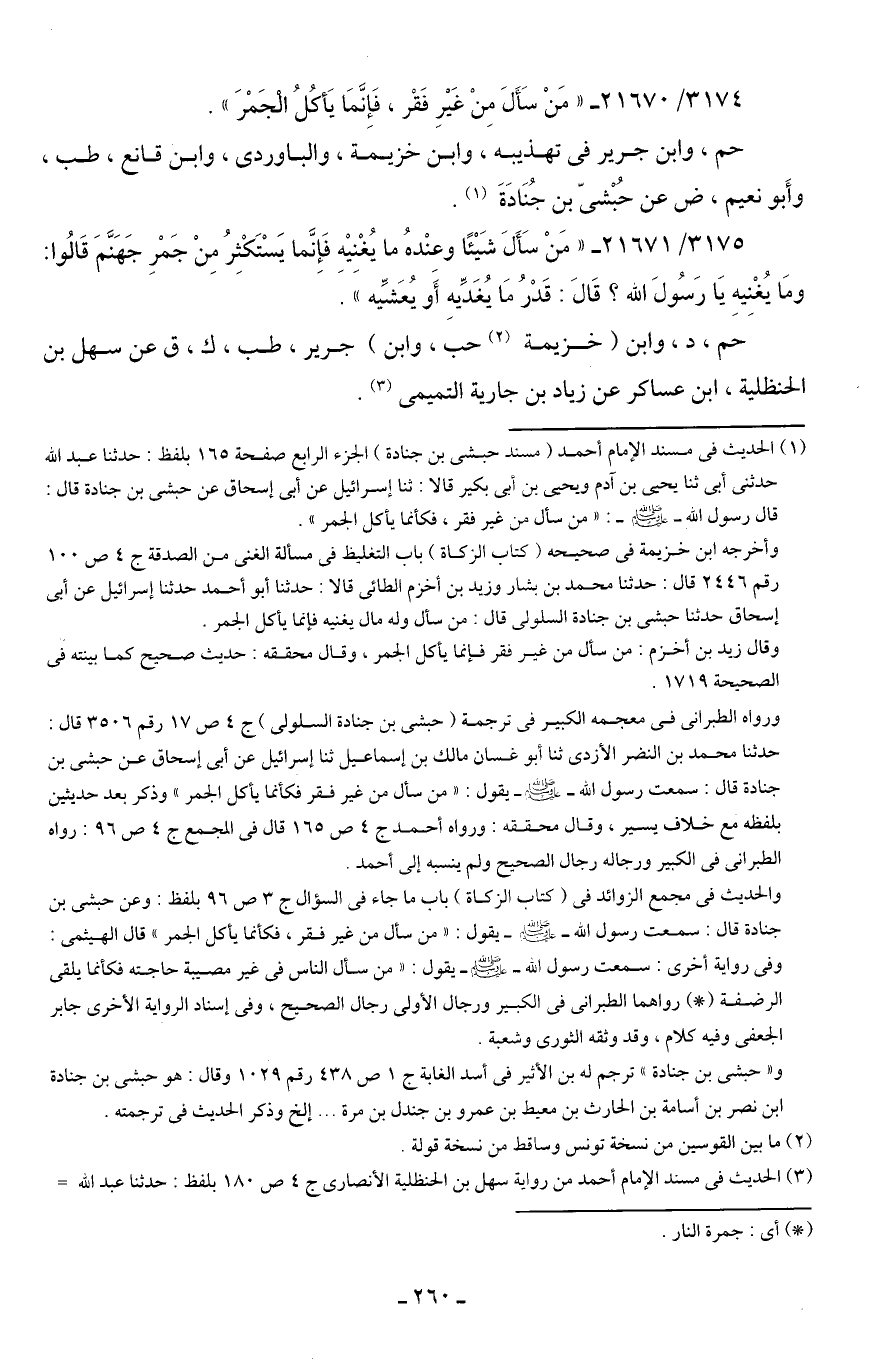 ٣١٧٤/ ٢١٦٧٠ـ « مَنْ سَأَلَ مِنْ غَيْرِ فَقْر ، فَإِنَّمَا يَأكُلُ الْجَمْرَ » .
حم ، وابن جرير فى تهذيبه ، وابن خزيمة ، والباوردى ، وابن قانع ، طب ،
وأَبو نعيم ، ض عن حُبْشىّ بن جُنَادَةَ (١) .
٣١٧٥/ ٢١٦٧١ـ « مَنْ سَأَلَ شَيْئًا وعنْدهُ ما يُغْنِيْهِ فَإِنَّما يَسْتَكْثِرُ مِنْ جَمْرِ جَهَنَّمَ قَالُوا:
ومَا يُغْنِيهِ يَا رَسُولَ الله ؟ قَالَ : قَدْرُ مَا يُغَدِّيهِ أو يُعَشِّيه » .
حم ، د ، وابن ( خزيمة (٢) حب ، وابن ) جرير ، طب ، ك ، ق عن سهل بن
الحنظلية ، ابن عساكر عن زياد بن جارية التميمى (٣) .
(١) الحديث فى مسند الإمام أحمد ( مسند حبشى بن جنادة ) الجزء الرابع صفحة ١٦٥ بلفظ : حدثنا عبد الله
حدثنى أبى ثنا يحيى بن آدم ويحيى بن أبى بكير قالا : ثنا إسرائيل عن أبى إسحاق عن حبشى بن جنادة قال :
قال رسول الله ـ ﷺ ـ : « من سأل من غير فقر ، فكأنما يأكل الجمر » .
وأخرجه ابن خزيمة فى صحيحه ( كتاب الزكاة ) باب التغليظ فى مسألة الغنى من الصدقة ج ٤ ص ١٠٠
رقم ٢٤٤٦ قال : حدثنا محمد بن بشار وزيد بن أخزم الطائى قالا : حدثنا أبو أحمد حدثنا إسرائيل عن أبى
إسحاق حدثنا حبشى بن جنادة السلولى قال : من سأل وله مال يغنيه فإنما يأكل الجمر .
وقال زيد بن أخزم : من سأل من غير فقر فإنما يأكل الجمر ، وقال محققه : حديث صحيح كما بينته فى
الصحيحة ١٧١٩ .
ورواه الطبرانى فى معجمه الكبير فى ترجمة ( حبشى بن جنادة السلولى ) ج ٤ ص ١٧ رقم ٣٥٠٦ قال :
حدثنا محمد بن النضر الأزدى ثنا أبو غسان مالك بن إسماعيل ثنا إسرائيل عن أبى إسحاق عن حبشى بن
جنادة قال : سمعت رسول الله ـ ﷺ ـ يقول : « من سأل من غير فقر فكأنما يأكل الجمر » وذكر بعد حديثين
بلفظه مع خلاف يسير ، وقال محققه : ورواه أحمد ج ٤ ص ١٦٥ قال فى المجمع ج ٤ ص ٩٦ : رواه
الطبرانى فى الكبير ورجاله رجال الصحيح ولم ينسبه إلى أحمد .
والحديث فى مجمع الزوائد فى ( كتاب الزكاة ) باب ما جاء فى السؤال ج ٣ ص ٩٦ بلفظ : وعن حبشى بن
جنادة قال : سمعت رسول الله ـ ﷺ ـ يقول : « من سأل من غير فقر ، فكأنما يأكل الجمر » قال الهيثمى :
وفى رواية أخرى : سمعت رسول الله ـ ﷺ ـ يقول : « من سأل الناس فى غير مصيبة حاجته فكأنما يلقى
الرضفة (*) رواهما الطبرانى فى الكبير ورجال الأولى رجال الصحيح ، وفى إسناد الرواية الأخرى جابر
الجعفى وفيه كلام ، وقد وثقه الثورى وشعبة .
و« حبشى بن جنادة » ترجم له بن الأثير فى أسد الغابة ج ١ ص ٤٣٨ رقم ١٠٢٩ وقال : هو حبشى بن جنادة
ابن نصر بن أسامة بن الحارث بن معيط بن عمرو بن جندل بن مرة ... إلخ وذكر الحديث فى ترجمته .
(٢) ما بين القوسين من نسخة تونس وساقط من نسخة قولة .
(٣) الحديث فى مسند الإمام أحمد من رواية سهل بن الحنظلية الأنصارى ج ٤ ص ١٨٠ بلفظ : حدثنا عبد الله =
(*) أى : جمرة النار .
ـ ٢٦٠ ـ